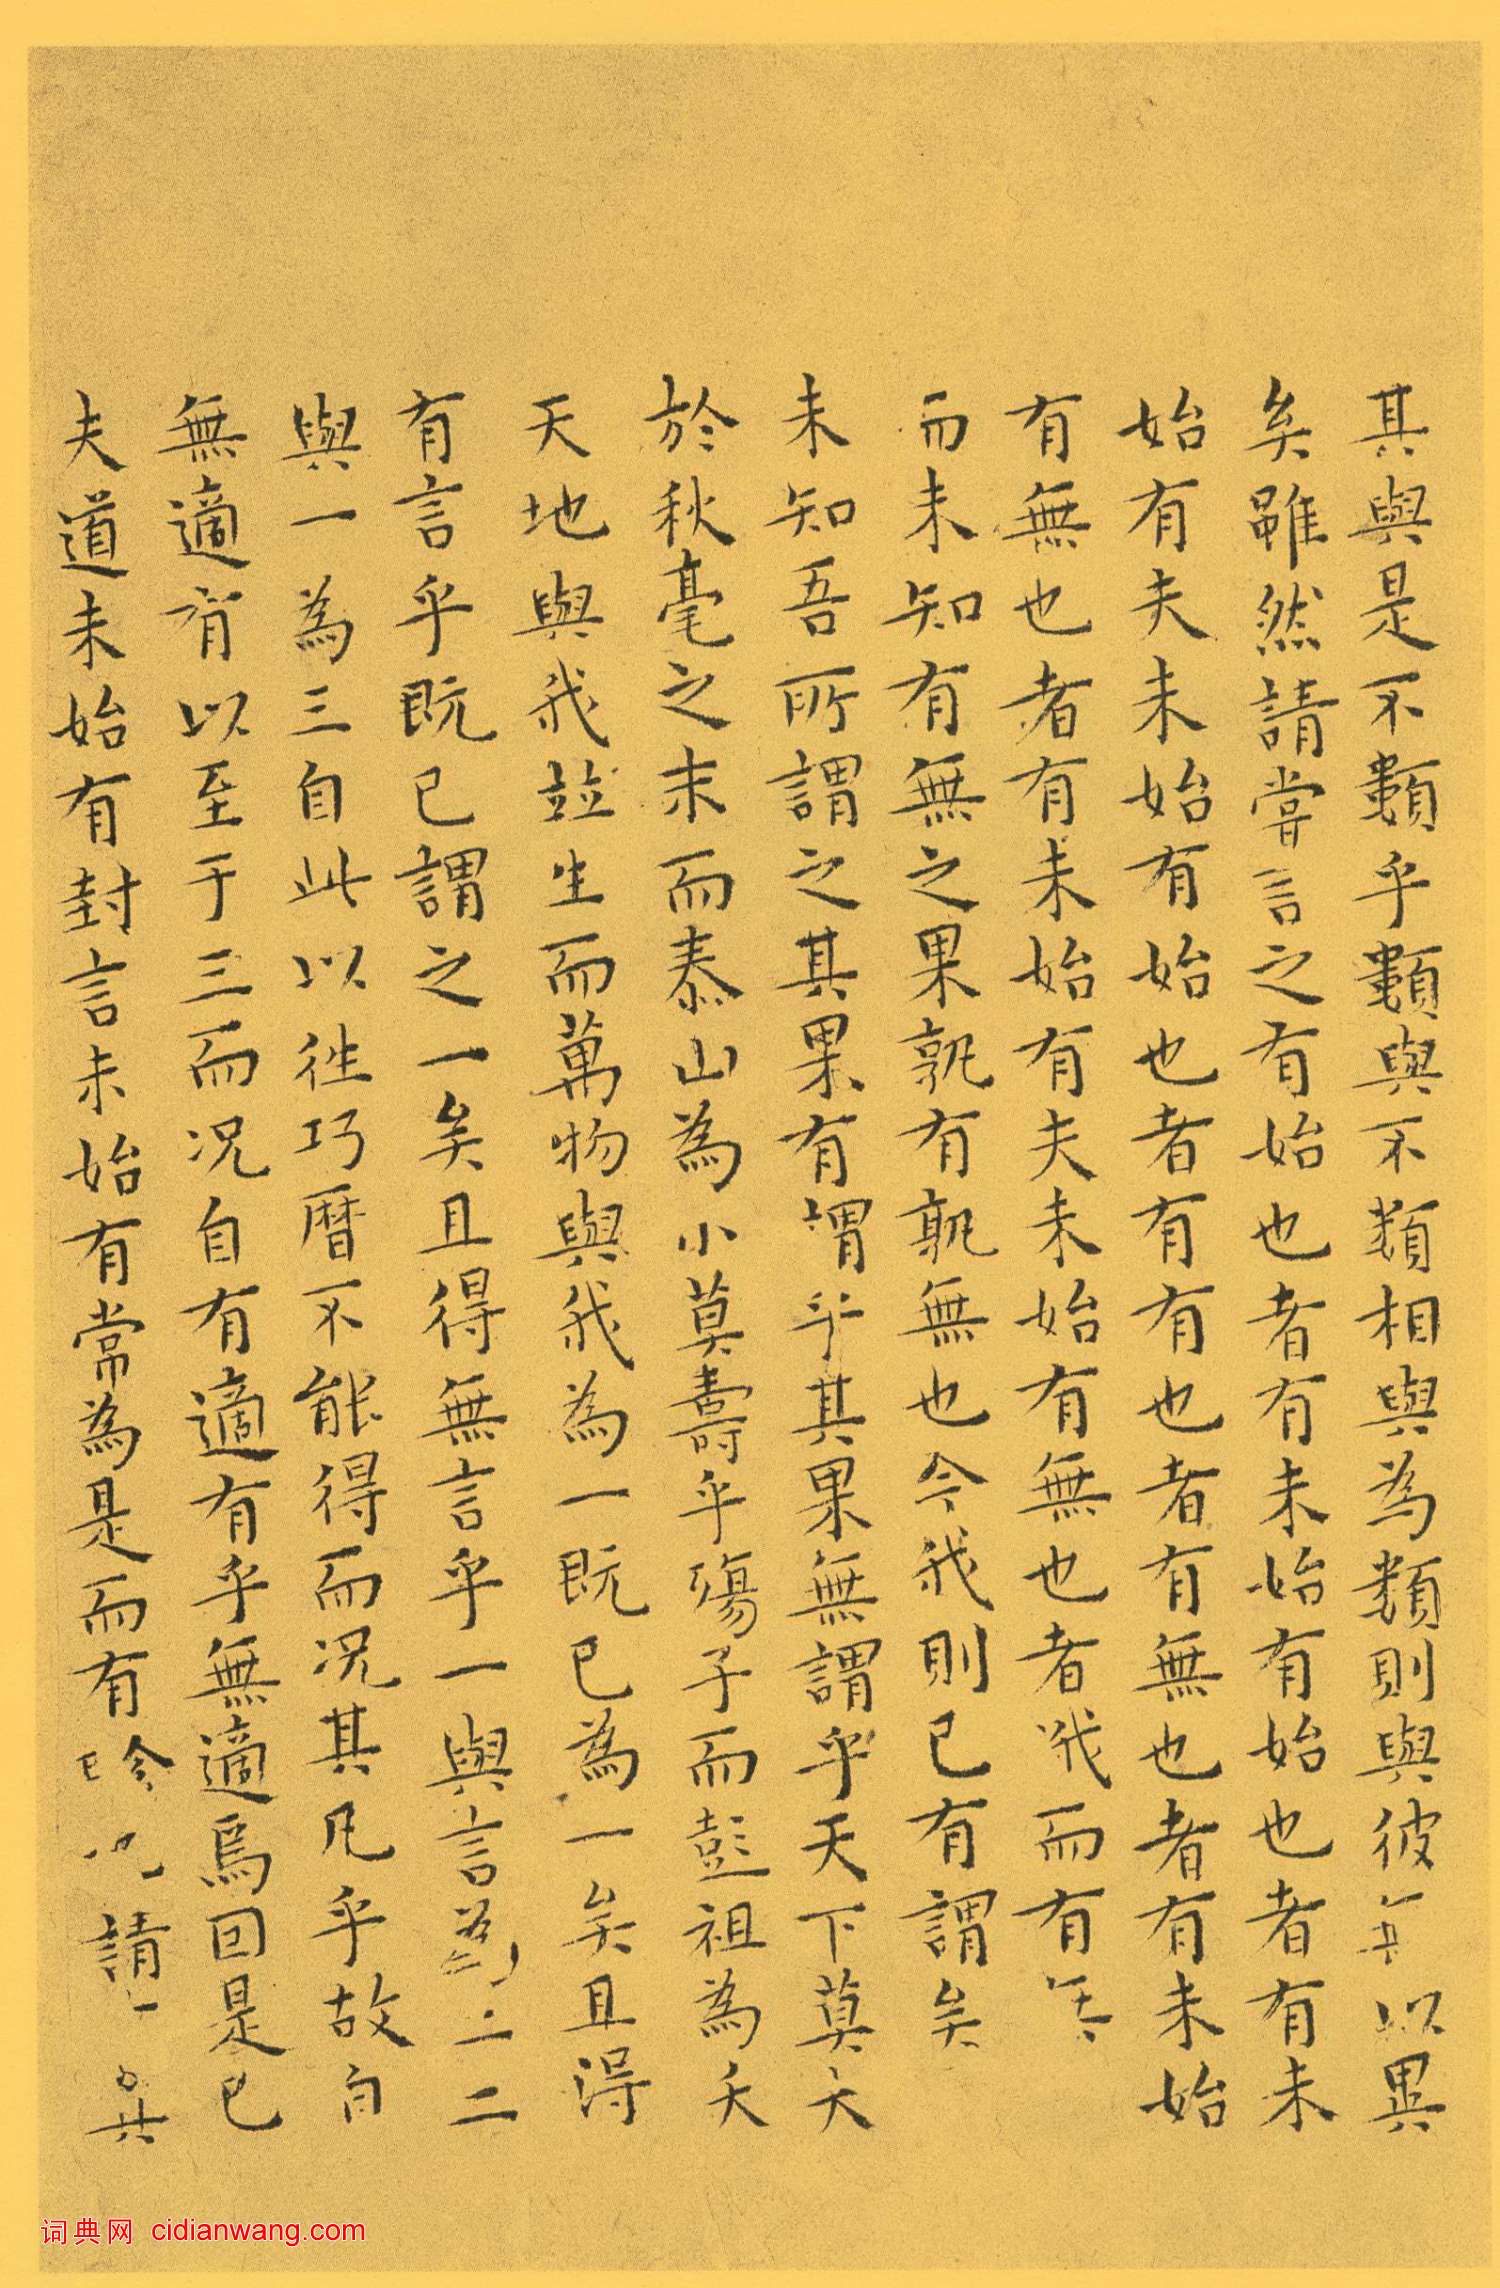 其與是不類乎類與不類相與為類則與彼無以異
矣雖然請嘗言之有始也者有未始有始也者有未
始有夫未始有始也者有有也者有無也者有未始
有無也者有未始有夫未始有無也者俄而有無
而未知有無之果孰有孰無也今我則已有謂矣
未知吾所謂之其果有謂乎其果無謂乎天下莫大
於秋毫之末而泰山為小莫壽乎殤子而彭祖為夭
天地與我竝生而萬物與我為一既已為一矣且得
有言乎既已謂之一矣且得無言乎一與言為二二
與一為三自此以往巧曆不能得而況其凡乎故自
無適有以至于三而況自有適有乎無適焉因是已
夫道未始有封言未始有常為是而有畛也請言其
词典网 cidianwang.com